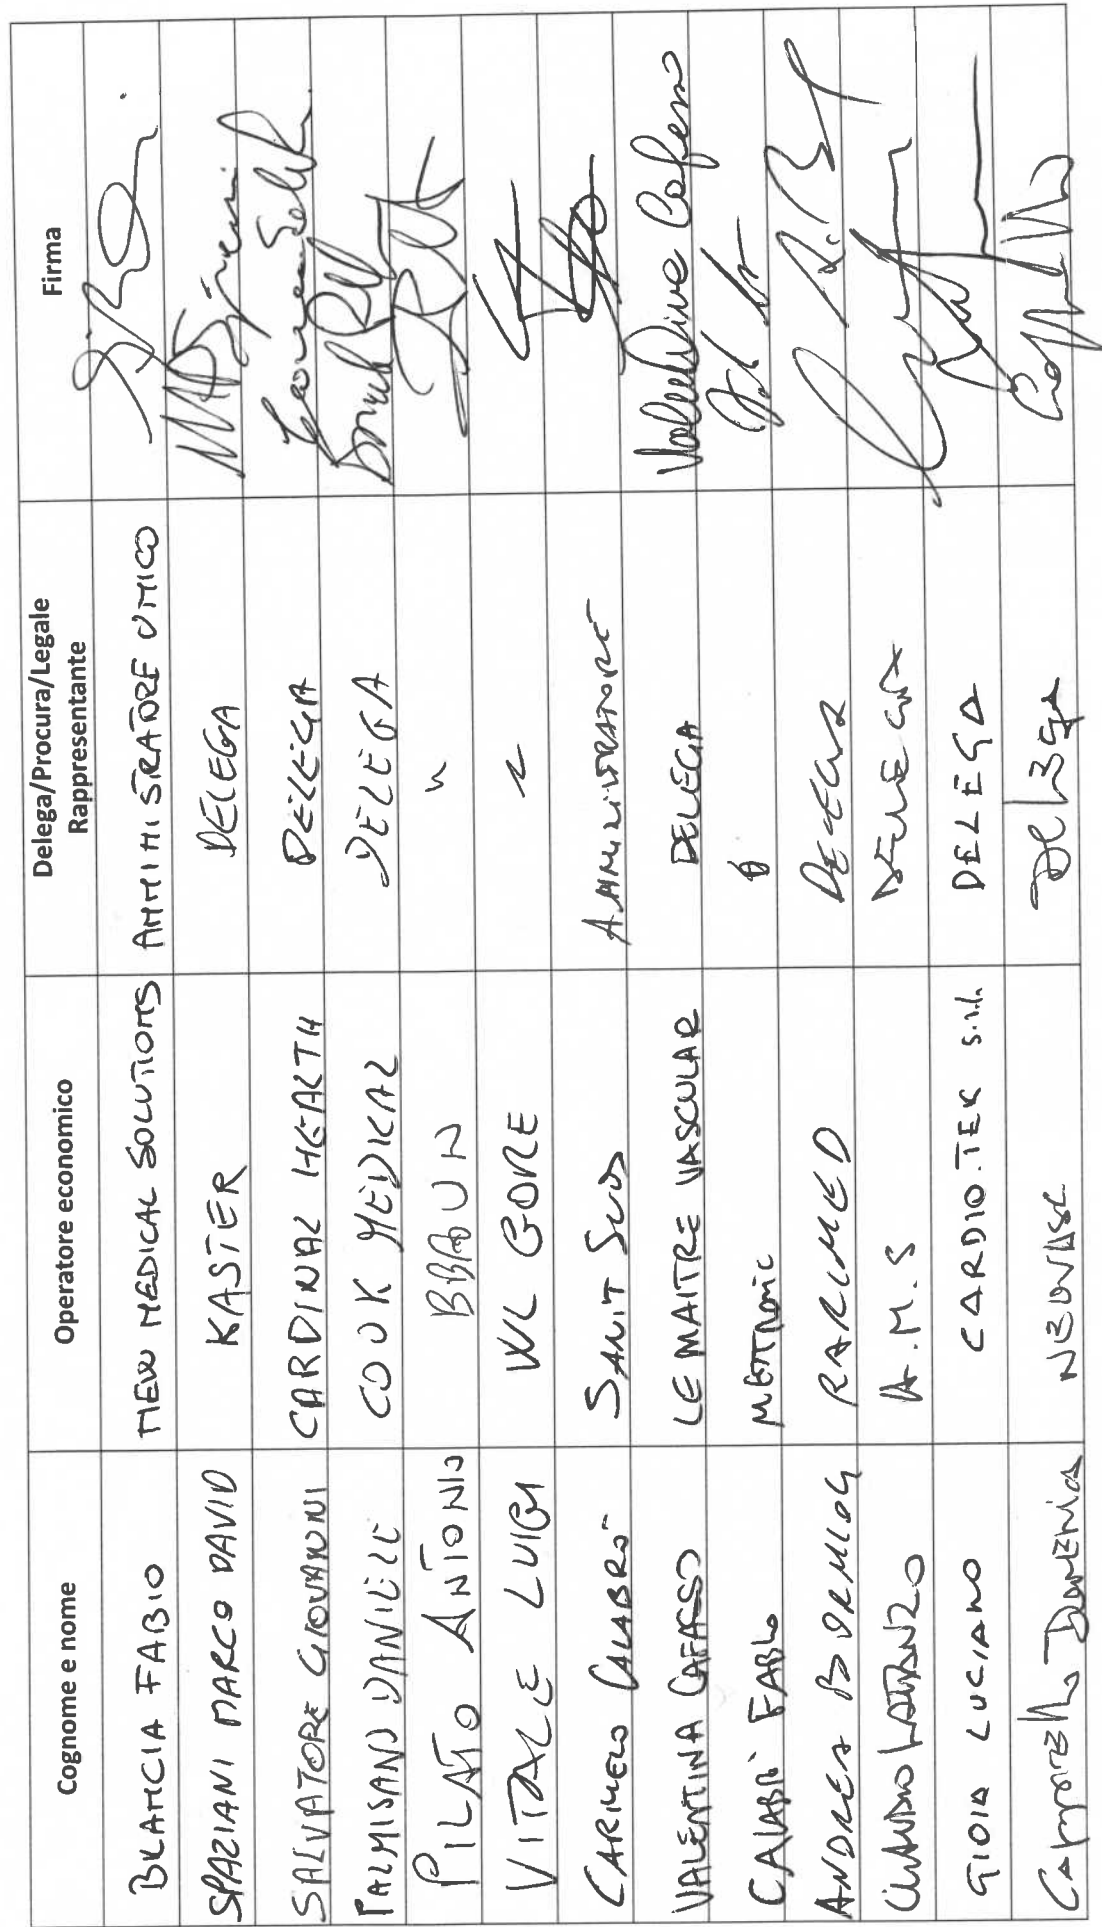 Cognome e nome Operatore economico Delega/Procura/Legale Rappresentante Firma
BLANCIA FABIO NEW MEDICAL SOLUTIONS AMMINISTRATORE UNICO
SPAZIANI MARCO DAVID KASTER DELEGA
SALVATORE GIOVANNI CARDINAL HEALTH DELEGA
PALMISANO DANIELE COOK MEDICAL DELEGA
PILATO ANTONIO BBAUN "
VITALE LUIGI WL GORE "
CARMELO CALABRÒ SANIT AMMINISTRATORE
VALENTINA CAFASSO LE MAITRE VASCULAR DELEGA Valentina Cafasso
CALABRÒ FABIO MEDTRONIC
ANDREA DELEGA
CLAUDIO A.M.S DELEGA
GIOIA LUCIANO CARDIO.TEK s.r.l. DELEGA
DOMENICA Delega